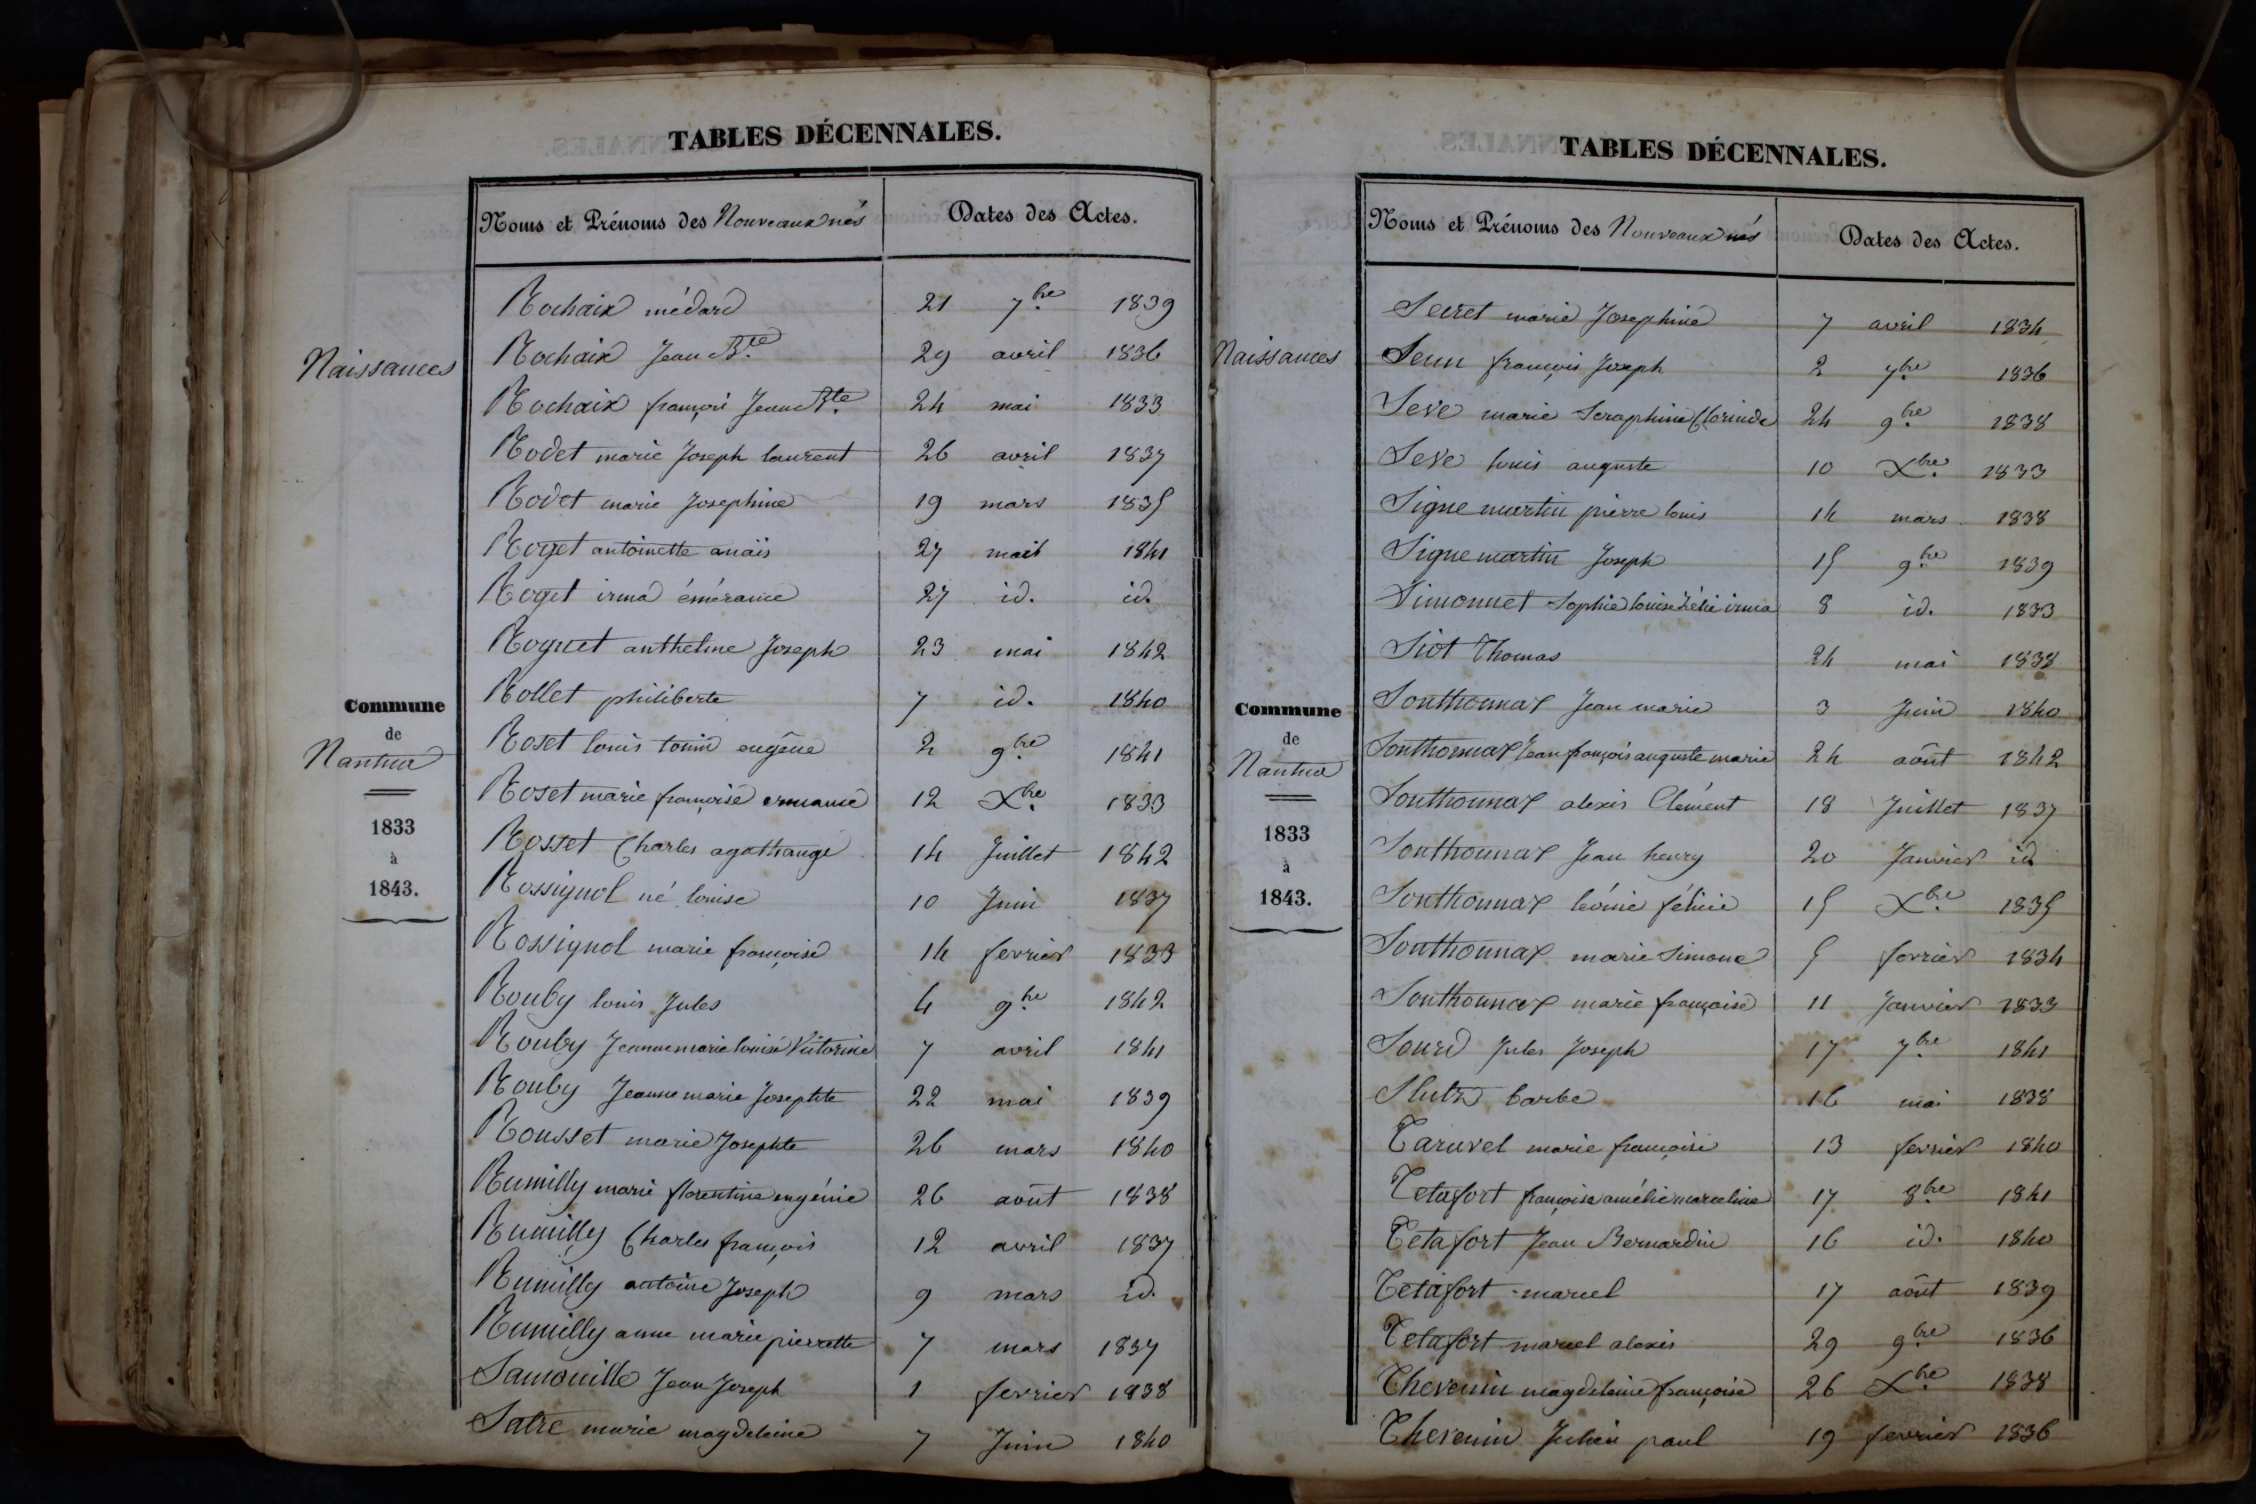 TABLES DÉCENNALES.
Noms et Prénoms des Nouveaux nés Dates des Actes.
Naissances
Commune
de
Nantua
1833
à
1843.
Rochaix médard 21 7bre 1839
Rochaix Jean Bte 29 avril 1836
Rochaix françois Jean Bte 24 mai 1833
Rodet marie Joseph laurent 26 avril 1837
Rodet marie Josephine 19 mars 1835
Roget antoinette anaïs 27 mais 1841
Roget irma émérance 27 id. id.
Roguet anthelme Joseph 23 mai 1842
Rollet philiberte 7 id. 1840
Roset louis tonin eugêne 2 9bre 1841
Roset marie françoise ermance 12 Xbre 1833
Rosset Charles agathange 14 Juillet 1842
Rossignol né louise 10 Juin 1837
Rossignol marie françoise 14 fevrier 1833
Rouby louis Jules 4 9bre 1842
Rouby Jeanne marie louise Victorine 7 avril 1841
Rouby Jeanne marie Josephte 22 mai 1839
Rousset marie Josephte 26 mars 1840
Rumilly marie florentine eugénie 26 août 1838
Rumilly Charles françois 12 avril 1837
Rumilly antoine Joseph 9 mars id.
Rumilly anne marie pierrette 7 mars 1837
Samouille Jean Joseph 1 fevrier 1838
Satre marie magdeleine 7 Juin 1840
TABLES DÉCENNALES.
Noms et Prénoms des Nouveaux nés Dates des Actes.
Naissances
Commune
de
Nantua
1833
à
1843.
Secret marie Josephine 7 avril 1834
françois Joseph 2 7bre 1836
Seve marie Seraphine Clorinde 24 9bre 1838
Seve louis auguste 10 Xbre 1833
Signe martin pierre louis 14 mars 1838
Signe martin Joseph 15 9bre 1839
Simonnet Sophie louise Zélie irma 8 id. 1833
Siot Thomas 24 mai 1838
Sonthonnax Jean marie 3 Juin 1840
Sonthonnax Jean françois auguste marie 24 août 1842
Sonthonnax alexis Clément 18 Juillet 1837
Sonthonnax Jean henry 20 Janvier id
Sonthonnax léonie félicie 15 Xbre 1835
Sonthonnax marie Simone 5 fevrier 1834
Sonthonnax marie françoise 11 Janvier 1833
Sourd Jules Joseph 17 7bre 1841
Stutz barbe 16 mai 1838
Taruvel marie françoise 13 fevrier 1840
Tetafort françoise amélie marceline 17 8bre 1841
Tetafort Jean Bernardin 16 id. 1840
Tetafort marcel 17 août 1839
Tetafort marcel alexis 29 9bre 1836
Thevenin magdeleine françoise 26 Xbre 1838
Thevenin Julien paul 19 fevrier 1836